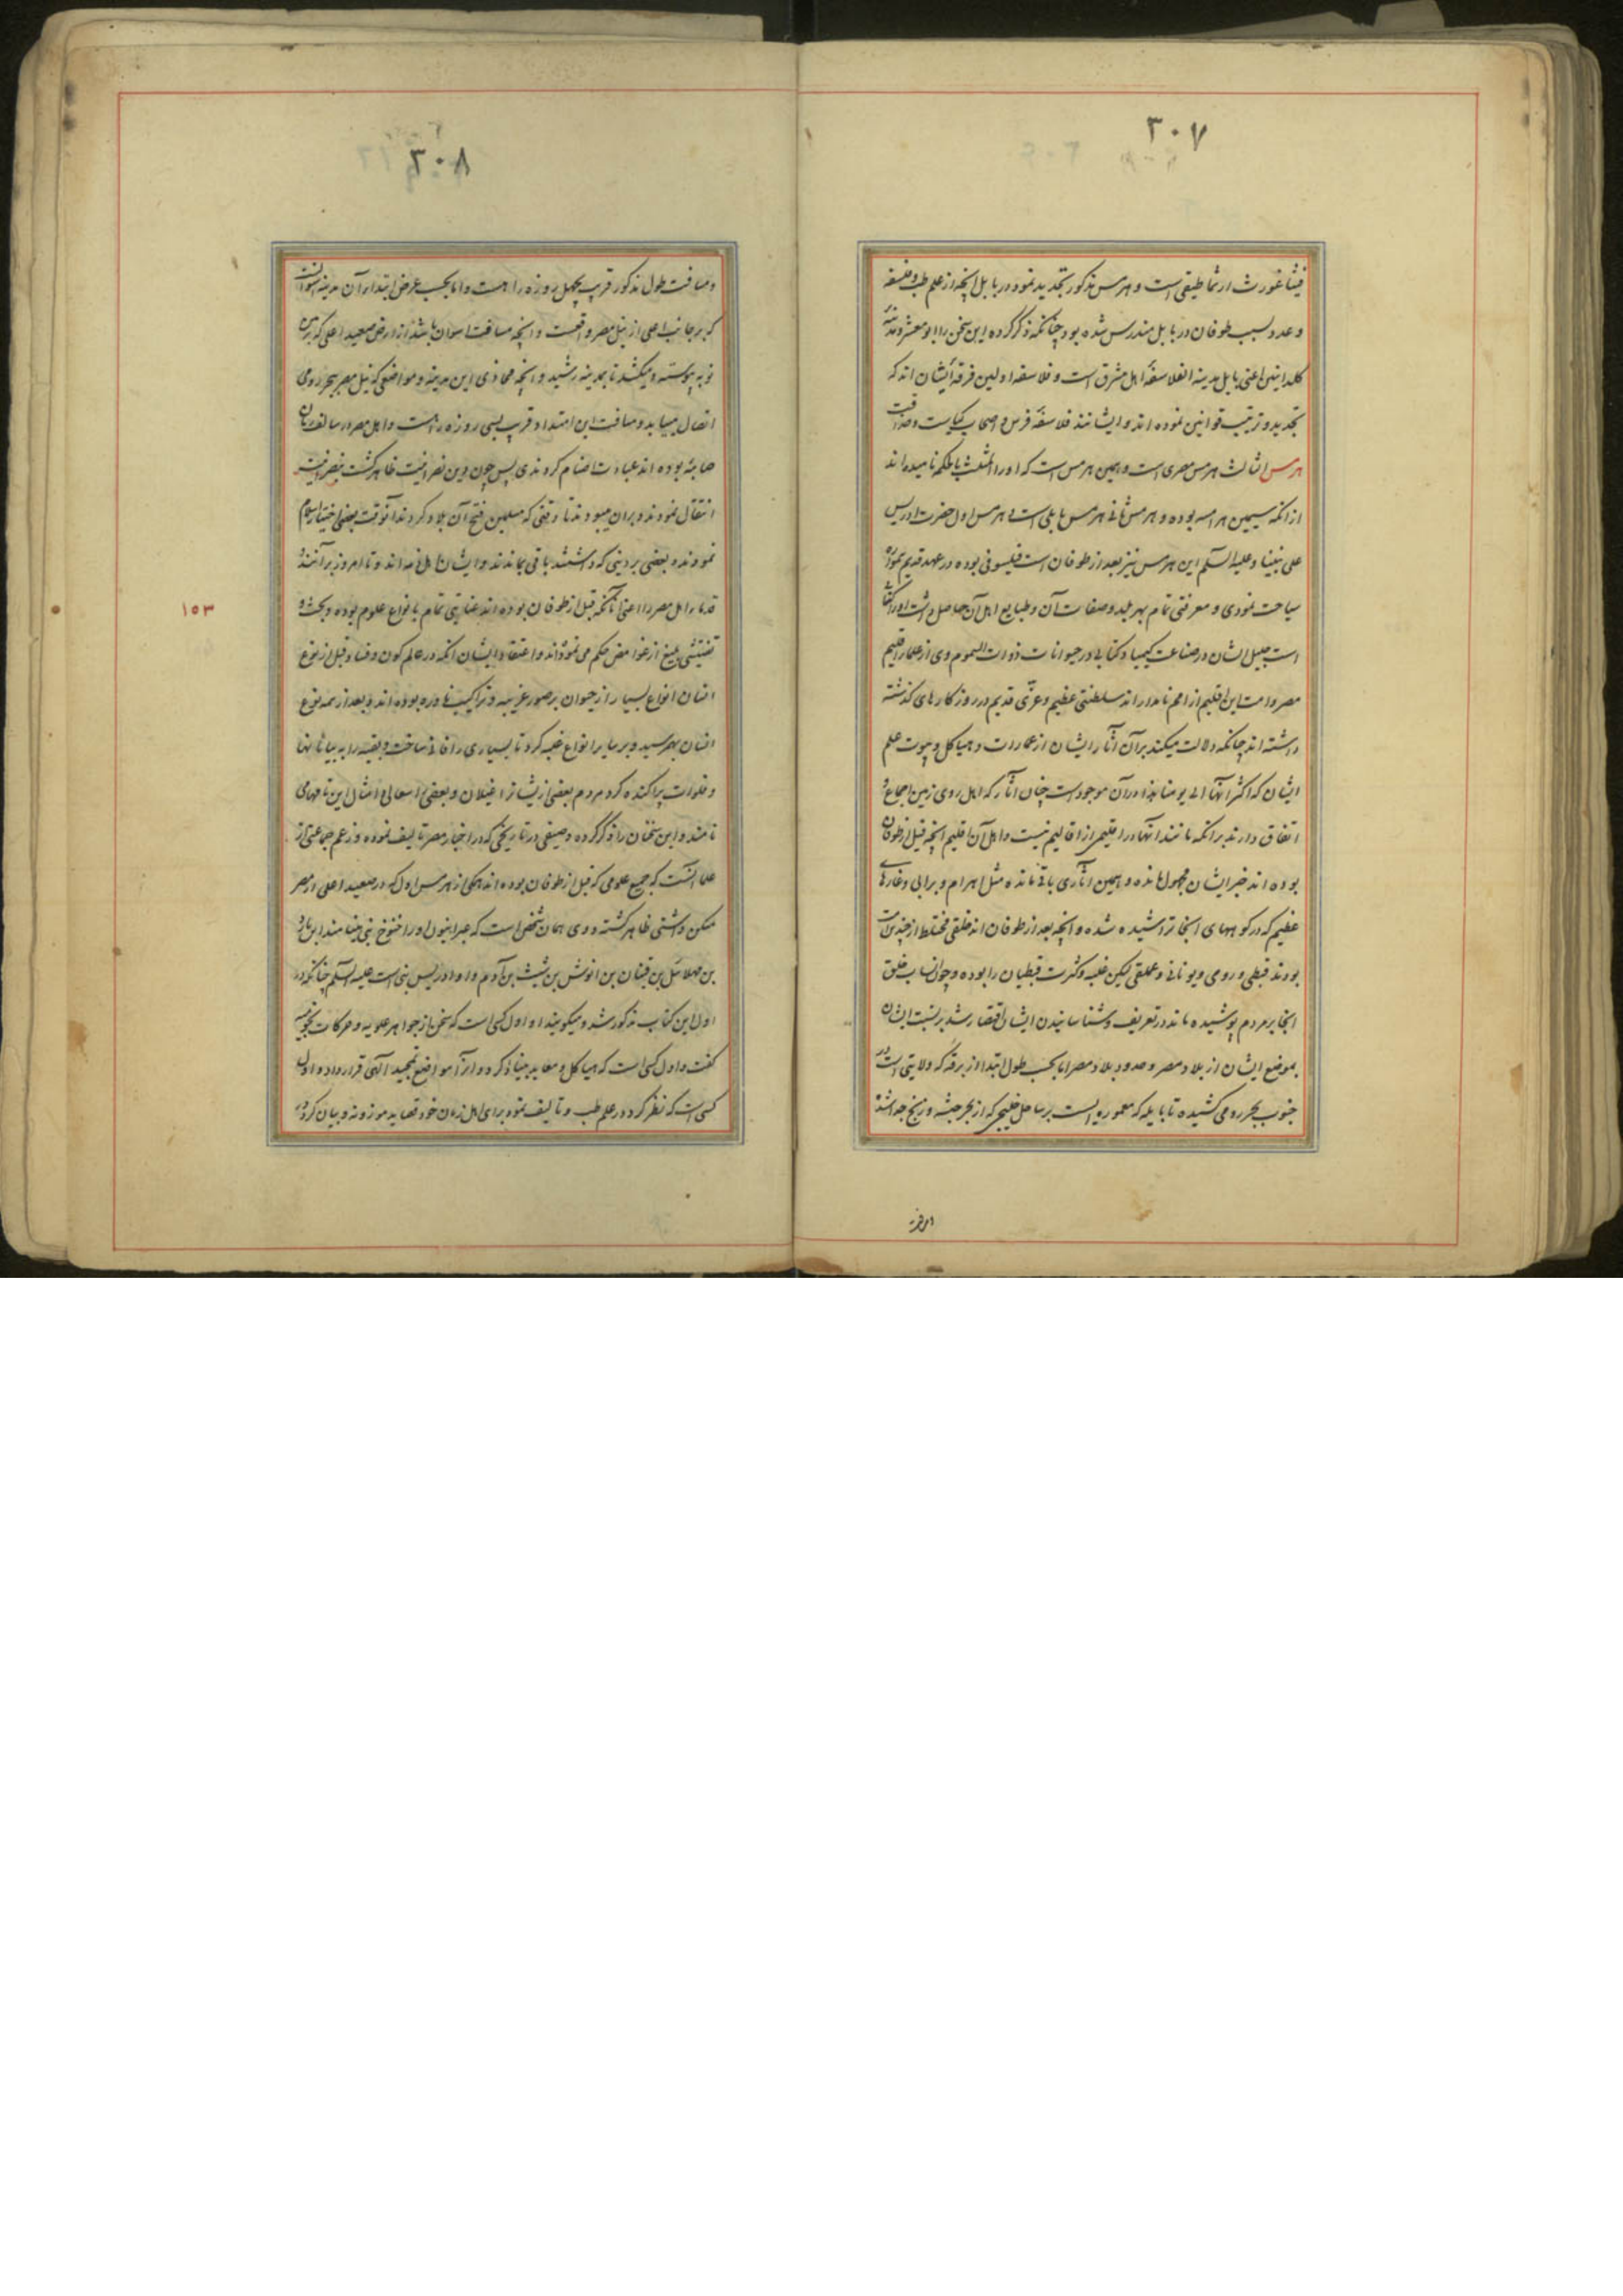 ۳۰۷
فیثاغورث ارثماطیقی است و هرمس مذکور تجدید نمود در بابل انچه از علم طب و فلسفه
و عدد بسبب طوفان در بابل مندرس شده بود چنانکه ذکر کرده این سخن را ابو معشر و مدینه
کلدانیین اعنی بابل مدینه الفلاسفهٔ اهل مشرق است و فلاسفه اولین فرقهٔ ایشان اند که
تجدید و ترتیب قوانین نموده اند و ایشانند فلاسفهٔ فرس و اصحاب کیاست و حذاقت
هرمس الثالث هرمس مصری است و همین هرمس است که او را المثلث بالحکمه نامیده اند
از انکه سیمین هرامسه بوده و هرمس ثانی هرمس بابلی است و هرمس اول حضرت ادریس
علی نبینا و علیه السلم این هرمس نیز بعد از طوفان است فیلسوفی بوده در عهد قدیم بموده
سیاحت نمودی و معرفتی تمام بهر بلد و صفات آن و طبایع اهل آن حاصل داشت او را کتا
است جلیل الشان در صناعت کیمیا و کتابی در حیوانات ذوات السموم وی از علمای اقلیم
مصر و امت این اقلیم از امم نامدار اند سلطنتی عظیم و عزتی قدیم در روزکار های کذشته
داشته اند چنانکه دلالت میکند بر آن آثار ایشان از عمارات و هیاکل و بیوت علم
ایشان که اکثر آنها الی یومنا هذا در آن موجود است چنان آثار که اهل روی زمین اجماع و
اتفاق دارند بر انکه مانند انها در اقلیمی از اقالیم نیست و اهل آن اقلیم انچه قبل از طوفان
بوده اند خبر ایشان مجهول مانده و همین آثاری باقی مانده مثل اهرام و برابی و غارهای
عظیم که در کوههای انجا تراشیده شده و انچه بعد از طوفان اند خلقی مختلط از چندین امت
بودند قبطی و رومی و یونانی و عملقی لیکن غلبه و کثرت قبطیان را بوده و چون انساب خلق
انجا بر مردم پوشیده ماند در تعریف و شناسانیدن ایشان اقتصار شد بر نسبت ایشان
بموضع ایشان از بلاد مصر و حدود بلاد مصر اما بحسب طول ابتدا از برقه که ولایتی است در
جنوب بحر رومی کشیده تا بایله که معموره ایست بر ساحل خلیجی که از بحر حبشه و زنج جدا شده
۳۰۸
و مسافت طول مذکور قریب بچهل روزه راهست و اما بحسب عرض ابتداء آن مدینه اسوانست
که بر جانب اعلی از نیل مصر واقعست و انچه مسافت اسوان باشد از ارض صعید اعلی که بارض
نوبه پیوسته و میکشد تا بمدینه رشید و انچه محاذی این مدینه و مواضعی که نیل مصر ببحر رومی
اتصال مییابد و مسافت این امتداد قریب بسی روزه راهست و اهل مصر در سالف زمان
صابئه بوده اند عبادت اصنام کردندی پس چون دین نصرانیت ظاهر کشت بنصرانیت
انتقال نمودند و بران میبودند تا وقتی که مسلمین فتح آن بلاد کردند آنوقت بعضی اختیار اسلام
نمودند و بعضی بر دینی که داشتند باقی بماندند و ایشان اهل ذمه اند و تا امروز بر آنند و
قدماء اهل مصر را اعنی آنانکه قبل از طوفان بوده اند عنایتی تمام بانواع علوم بوده و بحث و
تفتیشی بلیغ از غوامض حکم می نموده اند و اعتقاد ایشان انکه در عالم کون و فساد قبل از نوع
انسان انواع بسیار از حیوان بر صور غریبه و تراکیب نادره بوده اند و بعد از همه نوع
انسان بهم رسید و بر سایر انواع غلبه کرد تا بسیاری را فانی ساخت و بقیه را به بیابانها
و فلوات پراکنده کرد مردم بعضی از ایشانرا غیلان و بعضی را سعالی و امثال این نامها می
نامند و این سخنان را ذکر کرده وصیفی در تاریخی که در اخبار مصر تالیف نموده و زعم جماعتی از
علما انست که جمیع علومی که قبل از طوفان بوده اند همکی از هرمس اول که در صعید اعلی از مصر
مسکن داشتی ظاهر کشته و وی همان شخص است که عبرانیون او را خنوخ نبی مینامند ابن یارد
بن مهلائیل بن قینان بن انوش بن شیث بن آدم و او ادریس نبی است علیه السلم چنانکه در
اول این کتاب مذکور شد و میکویند او اول کسی است که سخن از جواهر علویه و حرکات نجومیه
کفت و اول کسی است که هیاکل و معابد بنا کرد و از آن مواضع تمجید الهی قرار داد و اول
کسی است که نظر کرد در علم طب و تالیف نمود برای اهل زمان خود قصاید موزونه و بیان کرد در
۱۵۳